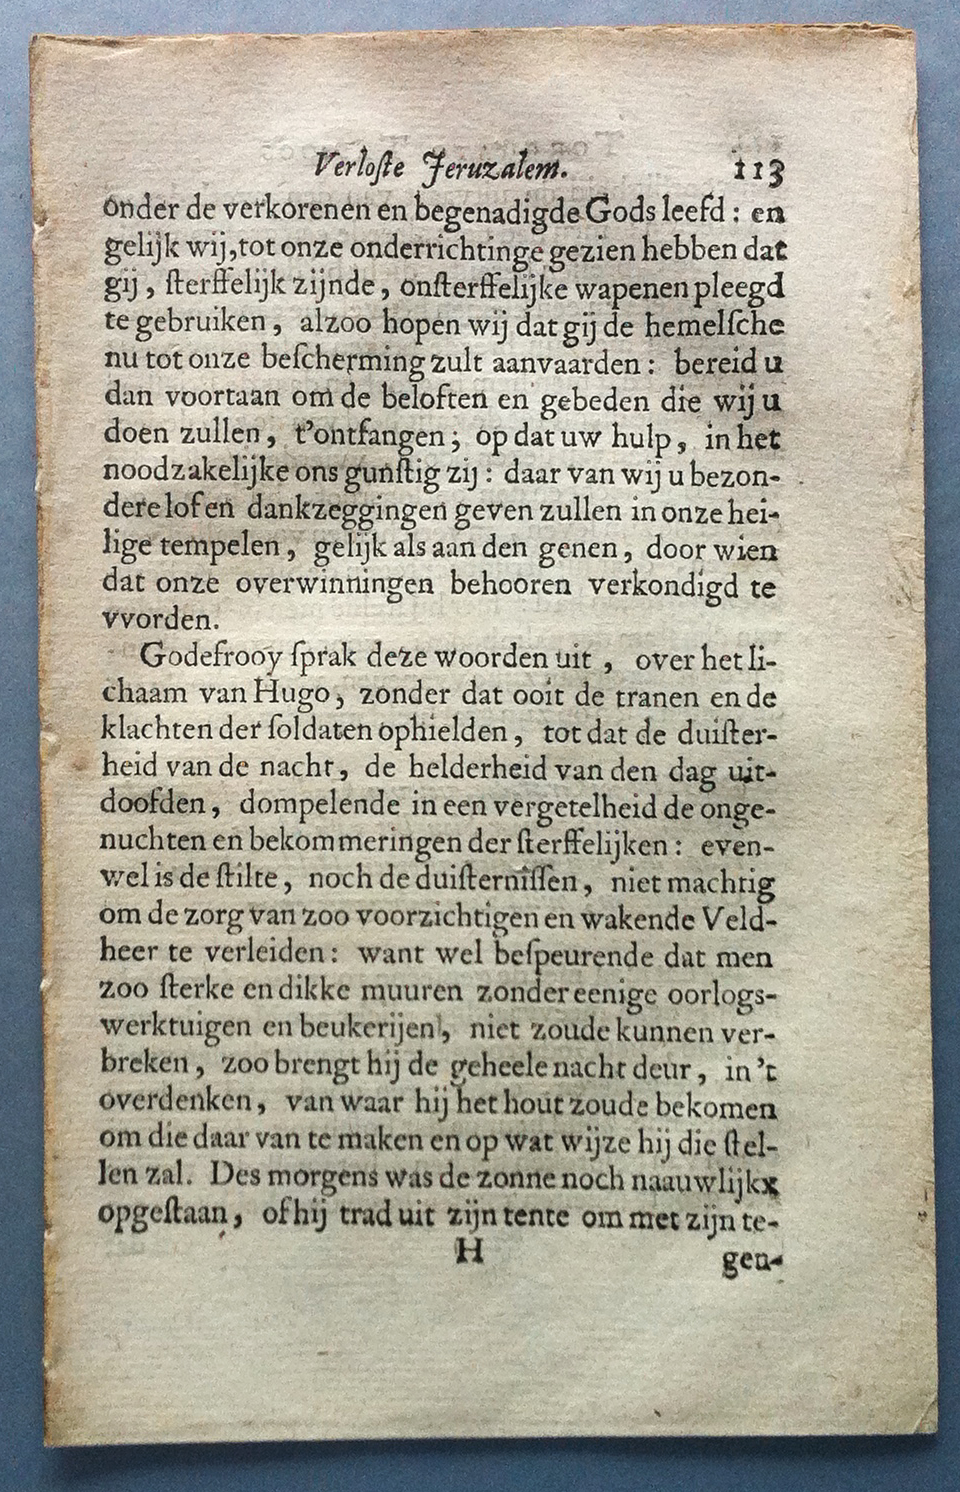 Verloſte Jeruzalem. 113
onder de verkorenen en begenadigde Gods leefd : en
gelijk wij, tot onze onderrichtinge gezien hebben dat
gij , ſterffelijk zijnde , onſterffelijke wapenen pleegd
te gebruiken , alzoo hopen wij dat gij de hemelſche
nu tot onze beſcherming zult aanvaarden : bereid u
dan voortaan om de beloften en gebeden die wij u
doen zullen , t'ontfangen ; op dat uw hulp , in het
noodzakelijke ons gunſtig zij : daar van wij u bezon-
dere lof en dankzeggingen geven zullen in onze hei-
lige tempelen , gelijk als aan den genen , door wien
dat onze overwinningen behooren verkondigd te
vvorden.
Godefrooy ſprak deze woorden uit , over het li-
chaam van Hugo , zonder dat ooit de tranen en de
klachten der ſoldaten ophielden , tot dat de duiſter-
heid van de nacht , de helderheid van den dag uit-
doofden , dompelende in een vergetelheid de onge-
nuchten en bekommeringen der ſterffelijken : even-
wel is de ſtilte , noch de duiſterniſſen , niet machtig
om de zorg van zoo voorzichtigen en wakende Veld-
heer te verleiden : want wel beſpeurende dat men
zoo ſterke en dikke muuren zonder eenige oorlogs-
werktuigen en beukerijen , niet zoude kunnen ver-
breken , zoo brengt hij de geheele nacht deur , in 't
overdenken , van waar hij het hout zoude bekomen
om die daar van te maken en op wat wijze hij die ſtel-
len zal. Des morgens was de zonne noch naauwlijkx
opgeſtaan , of hij trad uit zijn tente om met zijn te-
H gen-